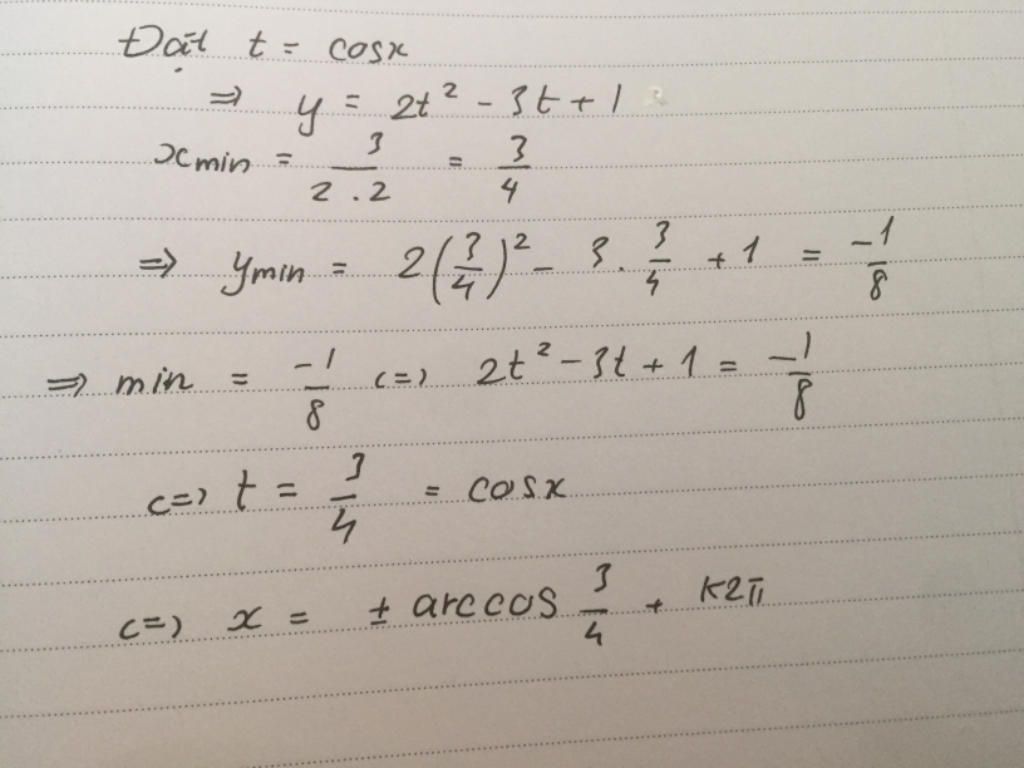 Đặt t = cosx
⇒ y = 2t² - 3t + 1
x min = 3/(2.2) = 3/4
⇒ y min = 2(3/4)² - 3. 3/4 + 1 = -1/8
⇒ min = -1/8 <=> 2t² - 3t + 1 = -1/8
<=> t = 3/4 = cosx
<=> x = ± arccos 3/4 + k2π